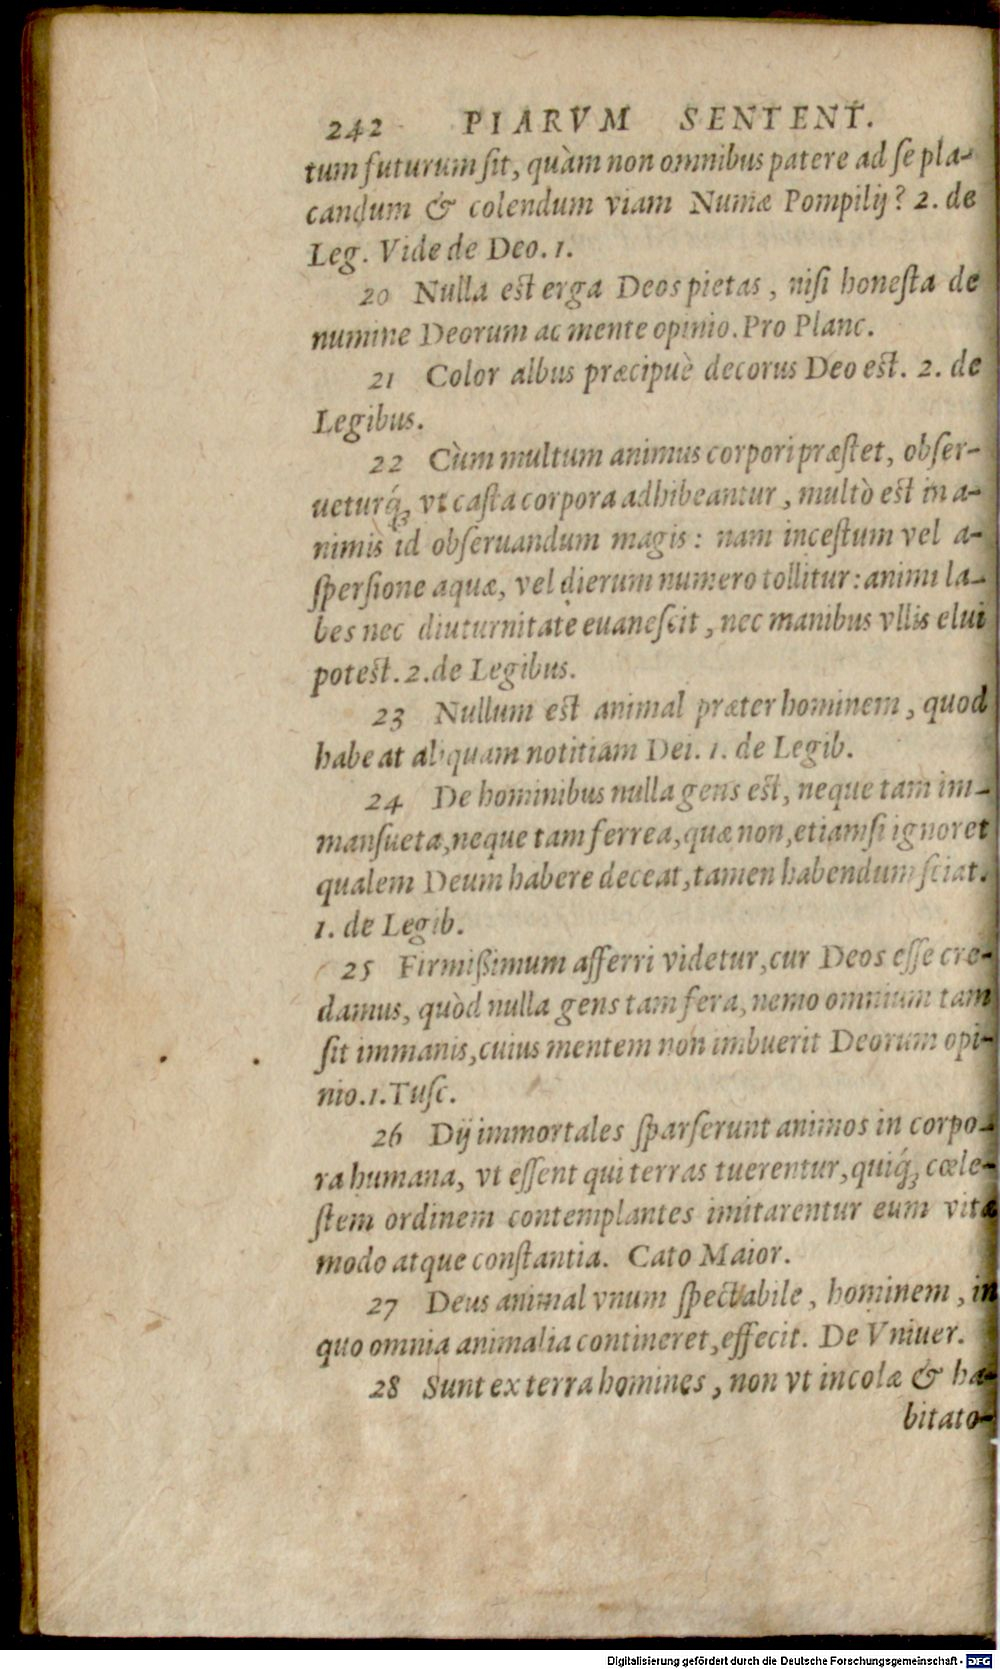 242 PIARVM SENTENT.
tum futurum sit, quàm non omnibus patere ad se pla-
candum & colendum viam Numæ Pompilij? 2. de
Leg. Vide de Deo. 1.
20 Nulla est erga Deos pietas, nisi honesta de
numine Deorum ac mente opinio. Pro Planc.
21 Color albus præcipuè decorus Deo est. 2. de
Legibus.
22 Cùm multum animus corpori præstet, obser-
ueturq́ꝫ vt casta corpora adhibeantur, multò est in a-
nimis id obseruandum magis: nam incestum vel a-
spersione aquæ, vel dierum numero tollitur: animi la-
bes nec diuturnitate euanescit, nec manibus vllis elui
potest. 2. de Legibus.
23 Nullum est animal præter hominem, quod
habeat aliquam notitiam Dei. 1. de Legib.
24 De hominibus nulla gens est, neque tam im-
mansueta, neque tam ferrea, quæ non, etiamsi ignoret
qualem Deum habere deceat, tamen habendum sciat.
1. de Legib.
25 Firmißimum afferri videtur, cur Deos esse cre-
damus, quòd nulla gens tam fera, nemo omnium tam
sit immanis, cuius mentem non imbuerit Deorum opi-
nio. 1. Tusc.
26 Dij immortales sparserunt animos in corpo-
ra humana, vt essent qui terras tuerentur, quiq́ꝫ cœle-
stem ordinem contemplantes imitarentur eum vitæ
modo atque constantia. Cato Maior.
27 Deus animal vnum spectabile, hominem, in
quo omnia animalia contineret, effecit. De Vniuer.
28 Sunt ex terra homines, non vt incolæ & ha-
bitato-
Digitalisierung gefördert durch die Deutsche Forschungsgemeinschaft - DFG